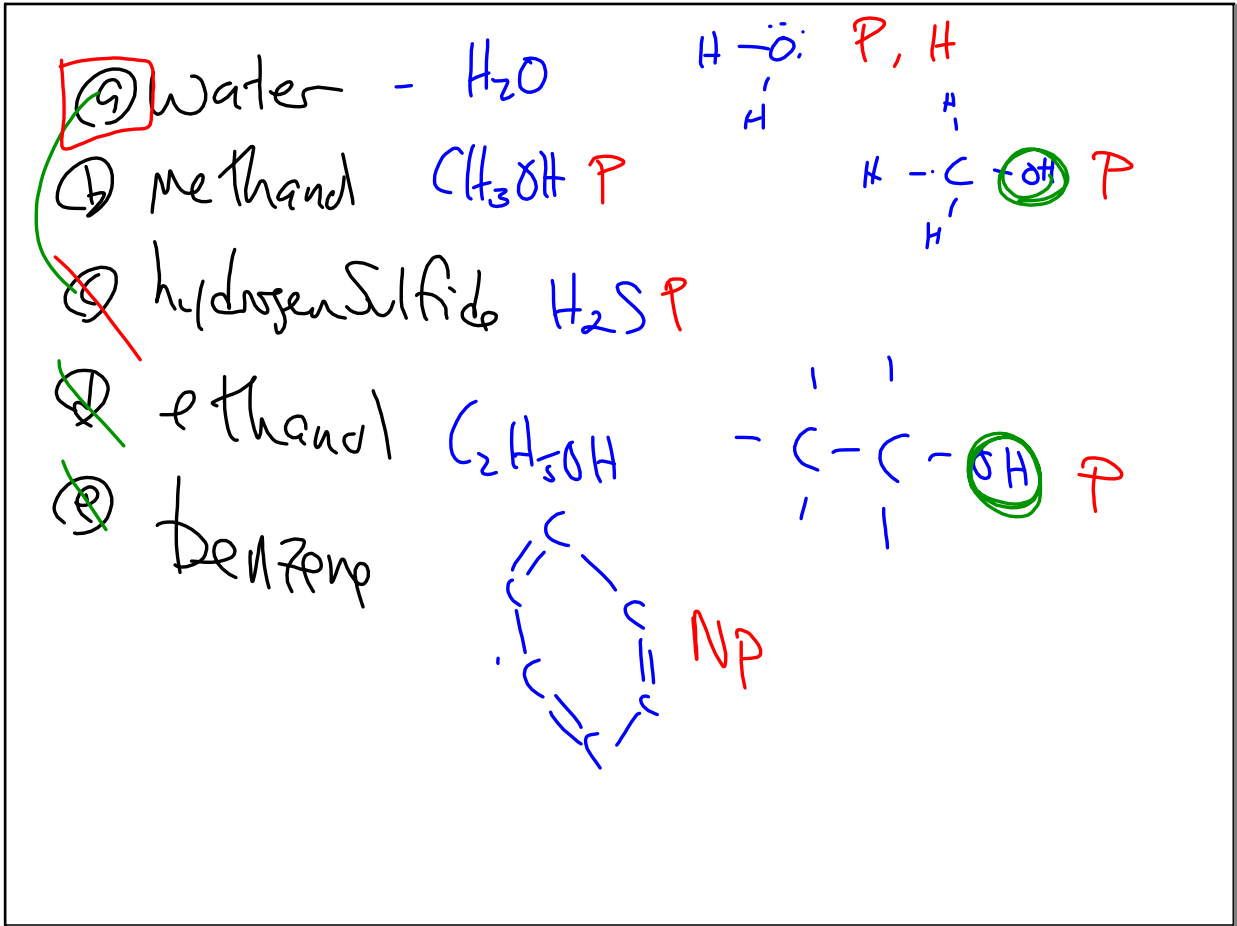 (a) water - H₂O H-Ö: P, H
H
(b) methanol CH₃OH P
H
H - C - OH P
H
(c) hydrogen Sulfide H₂S P
(d) ethanol C₂H₅OH - C - C - OH P
(e) benzene
C
C C
C C
C
NP